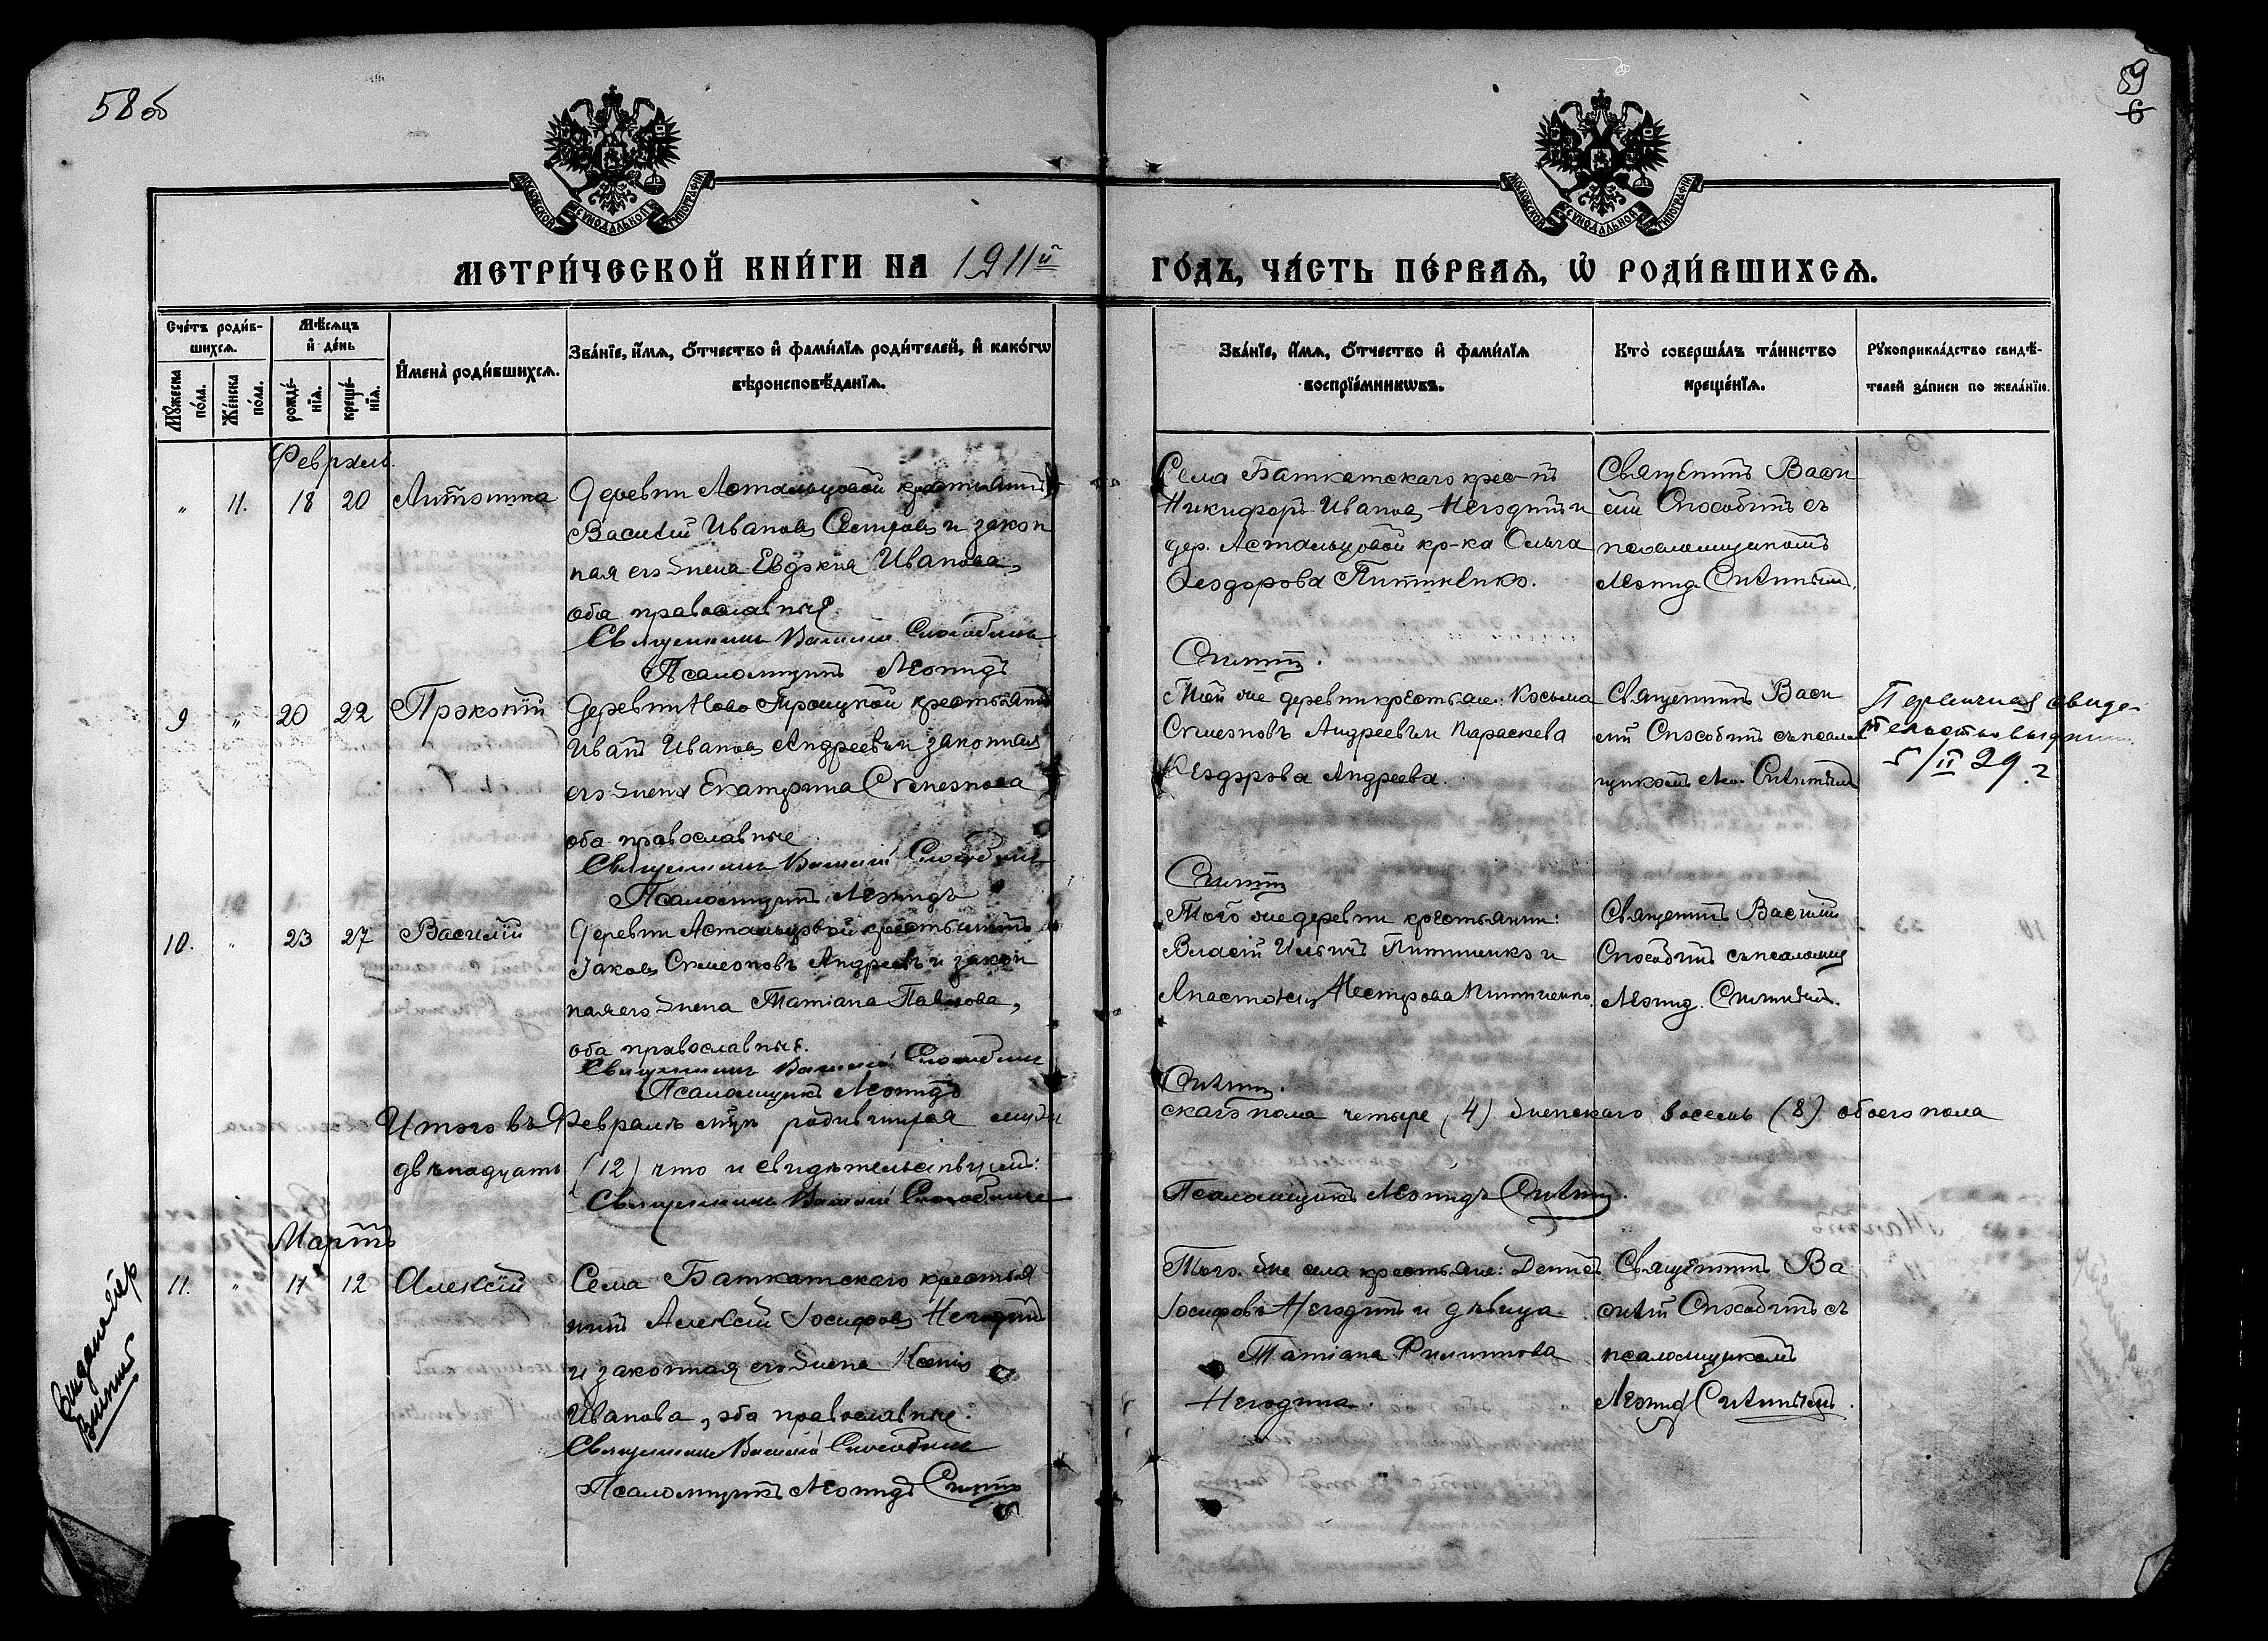 58 об
59
6
МОСКОВСКОЙ СѴНОДАЛЬНОЙ ТИПОГРАФІИ
МОСКОВСКОЙ СѴНОДАЛЬНОЙ ТИПОГРАФІИ
МЕТРИ́ЧЕСКОЙ КНИ́ГИ НА 1911й
ГО́ДЪ, ЧА́СТЬ ПЕ́РВАѦ, Ѡ҆ РОДИ́ВШИХСѦ.
Сче́тъ роди́в-
шихсѧ.
Мꙋ́жеска
по́ла.
Же́нска
по́ла.
Мѣ́сѧцъ
и҆ де́нь
рожде́-
нїѧ.
креще́-
нїѧ.
И҆мена̀ роди́вшихсѧ.
Зва́нїе, и҆́мѧ, ѻ҆́тчество и҆ фами́лїѧ роди́телей, и҆ како́гѡ
вѣроисповѣ́данїѧ.
Зва́нїе, и҆́мѧ, ѻ҆́тчество и҆ фами́лїѧ
воспрїе́мникѡвъ.
Кто̀ соверша́лъ та́инство
креще́нїѧ.
Рꙋкоприкла́дство свидѣ́-
телей за́писи по жела́нїю.
Февраль.
" 11. 18 20 Антонина
Деревни Астальцовой крестьянинъ
Василій Ивановъ Сестровъ и закон
ная его жена Евдокія Иванова,
оба православные.
Священникъ Василій Способинъ
Псаломщикъ Леонидъ
Села Баткатскаго крес-нъ
Никифоръ Ивановъ Негодинъ и
дер. Астальцовой кр-ка Ольга
Ѳеодорова Питиненко.
Священникъ Васи
лій Способинъ съ
псаломщикомъ
Леонид.
9 " 20 22 Прокопій
Деревни Ново Троицкой крестьянинъ
Иванъ Ивановъ Андреевъ и законная
его жена Екатерина Симеонова
оба православные
Священникъ Василій Способинъ
Псаломщикъ Леонидъ
Той же деревни крестьяне: Косьма
Симеоновъ Андреевъ и Параскева
Ѳеодорова Андреева.
Священникъ Васи
лій Способинъ съ псалом
щикомъ Лео.
Первичная свиде-
тельство выдана
5/II 29 г
10. " 23 27 Василій
Деревни Астальцовой крестьянинъ
Іаковъ Симеоновъ Андреевъ и закон
ная его жена Татіана Павлова,
оба православные.
Священникъ Василій Способинъ
Псаломщикъ Леонидъ
Того же деревни крестьяни:
Власій Ильинъ Питиненко и
Анастасія Нестерова Питиненко.
Священникъ Василій
Способинъ съ псаломщ
Леонид.
Итого въ Февралѣ м-цѣ родившихся муже
скаго пола четыре (4) женскаго восемь (8) обоего пола
двѣнадцать (12) что и свидѣтельствуемъ:
Священникъ Василій Способинъ
Псаломщикъ Леонидъ
Мартъ
11. " 11 12 Алексій
Села Баткатскаго крестья
нинъ Алексій Іосифовъ Негодинъ
и законная его жена Ксенія
Иванова, оба православные.
Священникъ Василій Способинъ
Псаломщикъ Леонидъ
Того же села крестьяне: Денисъ
Іосифовъ Негодинъ и дѣвица
Татіана Филиппова
Негодина.
Священникъ Ва
силій Способинъ съ
псаломщикомъ
Леонид